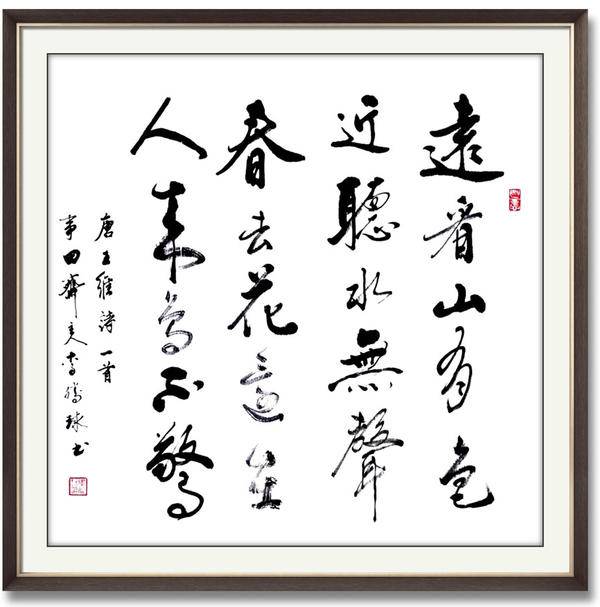 遠看山有色
近聽水無聲
春去花還在
人來鳥不驚
唐王維詩一首
田齋李騰球书